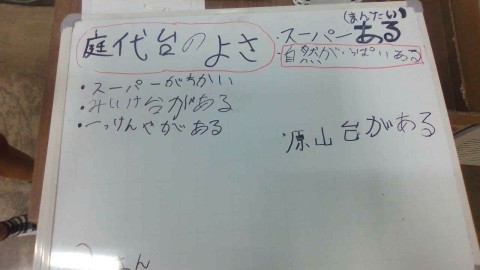 庭代台のよさ
・スーパーがちかい
・みいけ台がある
・いっけんやがある
(まんたい)
・スーパーある
自然がいっぱいある
・原山台がある